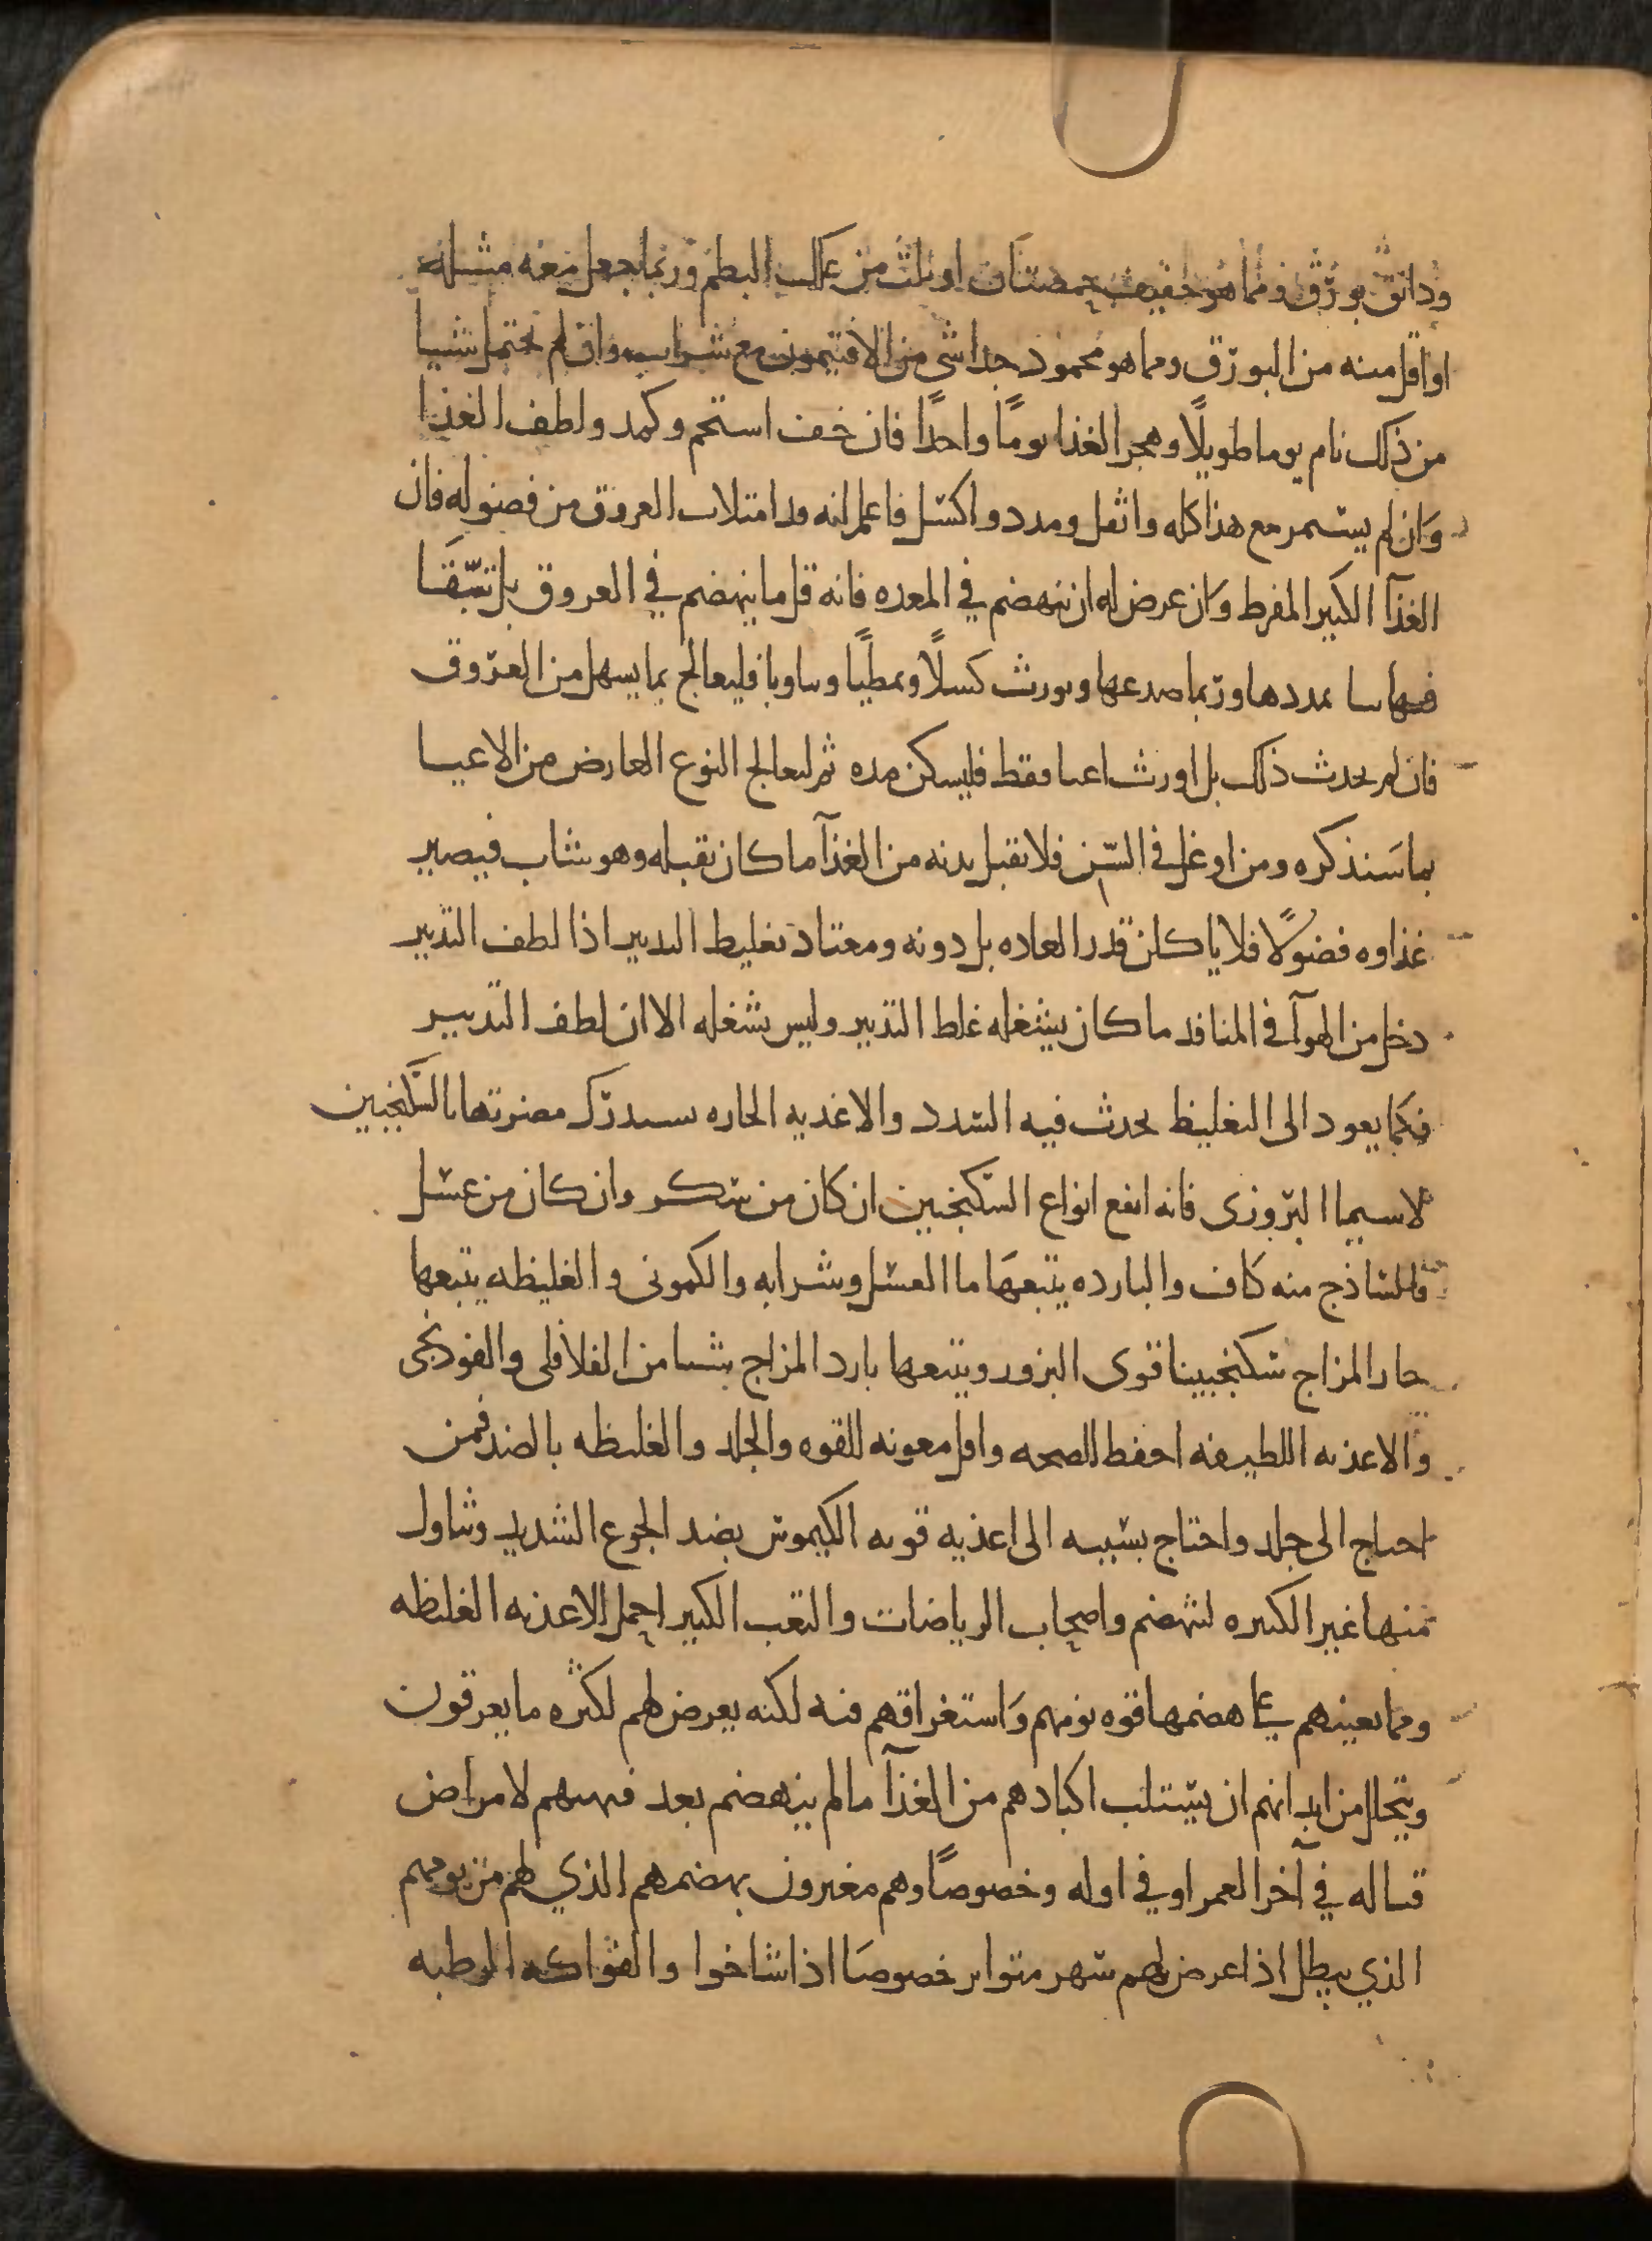 ودانق بورق ومما هو خفيف حمصتان او ثلث من علك البطم وربما يجعل معه مثله
او اقل منه من البورق ومما هو محمود جدا شى من الافتيمون مع شراب وان لم تحتمل شيا
من ذلك نام يوما طويلًا وهجر الغذا يومًا واحدًا فان خف استحم وكمد ولطف الغذا
وَان لم يستمر مع هذا كله واثقل ومدد واكسل فاعلم انه قد امتلات العروق من فضوله فان
الغذآ الكبير المفرط وَان عرض له ان ينهضم في المعده فانه قل ما ينهضم في العروق بل تبقَا
فيها نيا يمددها وربما صدعها ويورث كسلًا وتمطيًا وتثاوبا فليعالج بما يسهل من العروق
فان لم يحدث ذلك بل اورث اعيا فقط فليسكن مده ثم ليعالج النوع العارض من الاعيا
بما سَنذكره ومن اوغل في السّن فلا تقبل بدنه من الغذآ ما كان تقبله وهو شاب فيصير
غذاوه فضولًا فلا ياكلن قدر العاده بل دونه ومعتاد تغليظ التدبير اذا لطف التدبير
دخل من الهوآ في المنافذ ما كان يشغله غلظ التدبير وليس يشغله الا ان لطف التدبير
فكما يعود الى التغليظ يحدث فيه السدد والاغذيه الحاره يستدرك مضرتها بالسّكنجبين
لا سيما البزوزى فانه انفع انواع السكنجبين ان كان من سكر وان كان من عسل
فالساذج منه كاف والبارده يتبعهَا ما العسل وشرابه والكمونى والغليظه يتبعها
حار المزاج سكنجبينا قوى البزور ويتبعها بارد المزاج بشيا من الفلافلى والفودنجى
والاغذيه اللطيفه احفظ للصحه واقل معونه للقوه والجلد والغليظه بالضد فمن
احتاج الى جلد واحتاج بسببه الى اغذيه قويه الكيموس يضد الجوع الشديد وتناول
منها غير الكثيره لتنهضم واصحاب الرياضات والتعب الكبير احمل الاغذيه الغليظه
ومما يعينهم على هضمها قوه نومهم وَاستغراقهم فيه لكنه يعرض لهم لكثره ما يعرقون
ويتحلل من ابدانهم ان يستلب اكبادهم من الغذآ ما لم ينهضم بعد فيهيهم لامراض
قتاله في آخر العمر او في اوله وخصوصًا وهم مغترون بهضمهم الذي لهم من نومهم
الذي يبطل اذا عرض لهم سهر متواتر خصوصَا اذا شاخوا والفواكه الرطبه